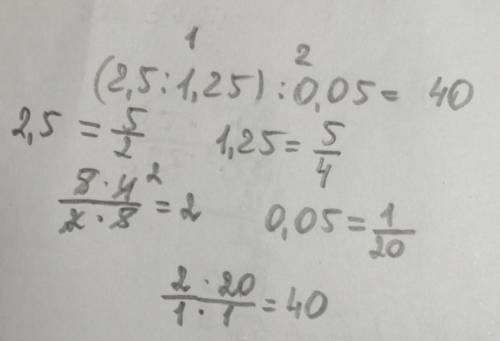 1 2
(2,5:1,25):0,05= 40
2,5 = 5/2 1,25= 5/4
5·4²/2·5 = 2 0,05= 1/20
2·20/1·1 = 40